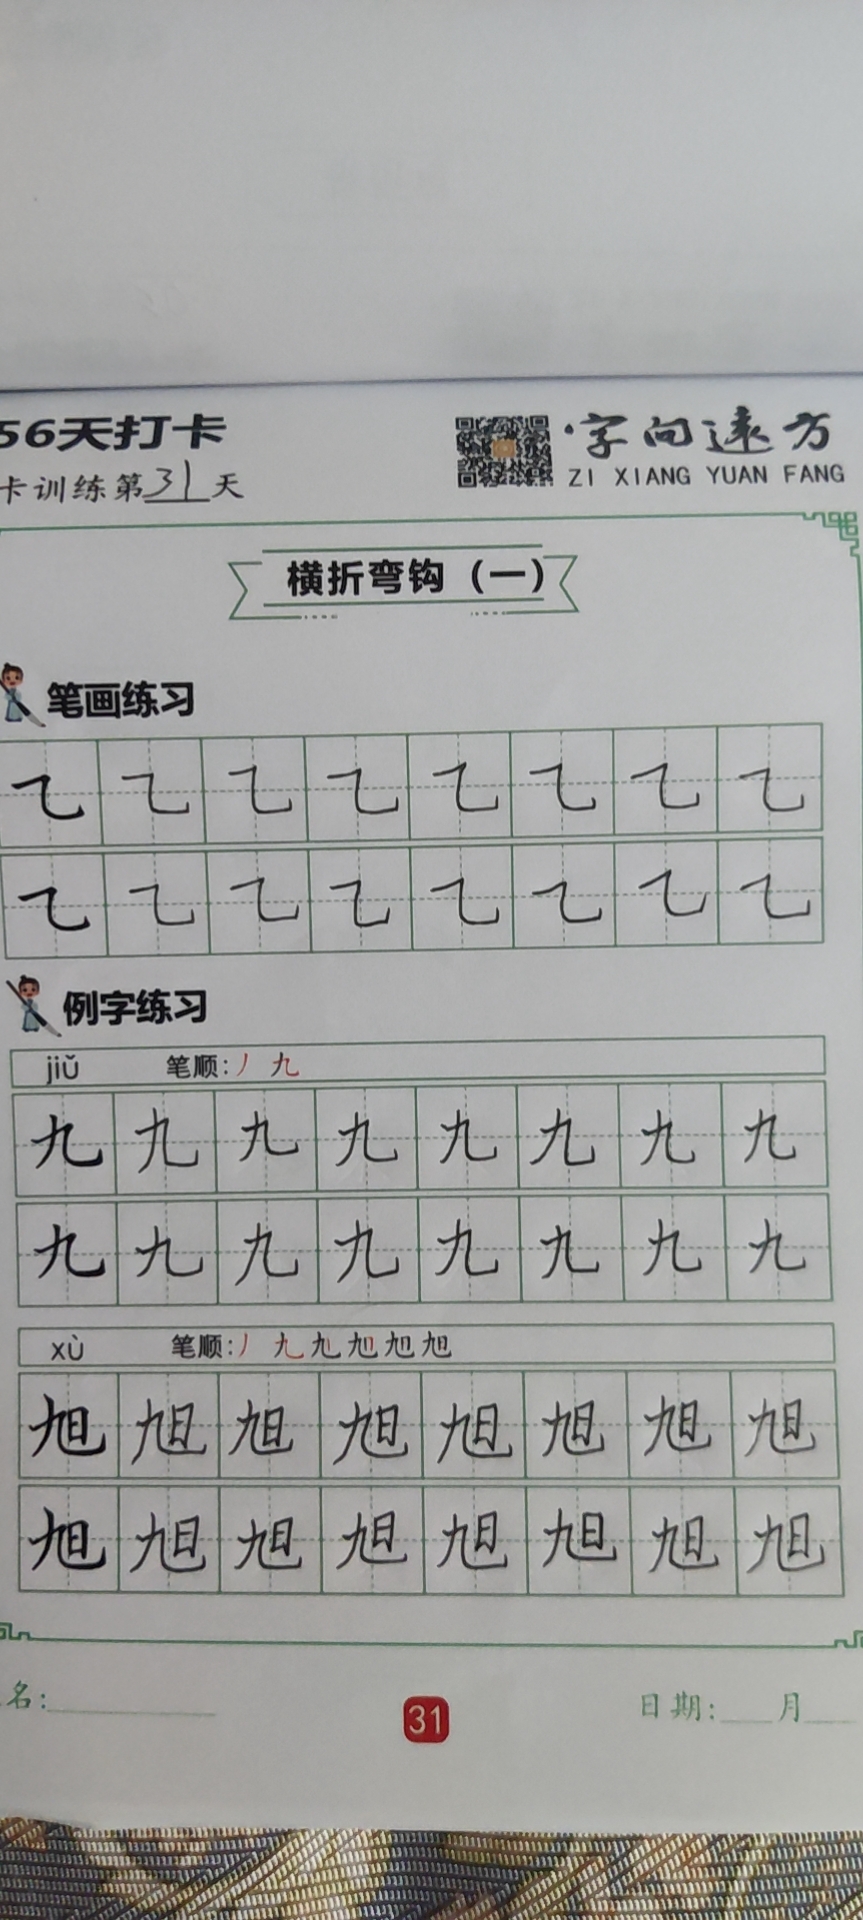 56天打卡
·字向远方
卡训练第31天
ZI XIANG YUAN FANG
横折弯钩（一）
笔画练习
乙 乙 乙 乙 乙 乙 乙 乙
乙 乙 乙 乙 乙 乙 乙 乙
例字练习
jiǔ 笔顺：丿 九
九 九 九 九 九 九 九 九
九 九 九 九 九 九 九 九
xù 笔顺：丿 九 旭 旭 旭 旭
旭 旭 旭 旭 旭 旭 旭 旭
旭 旭 旭 旭 旭 旭 旭 旭
名：
31
日期：___月